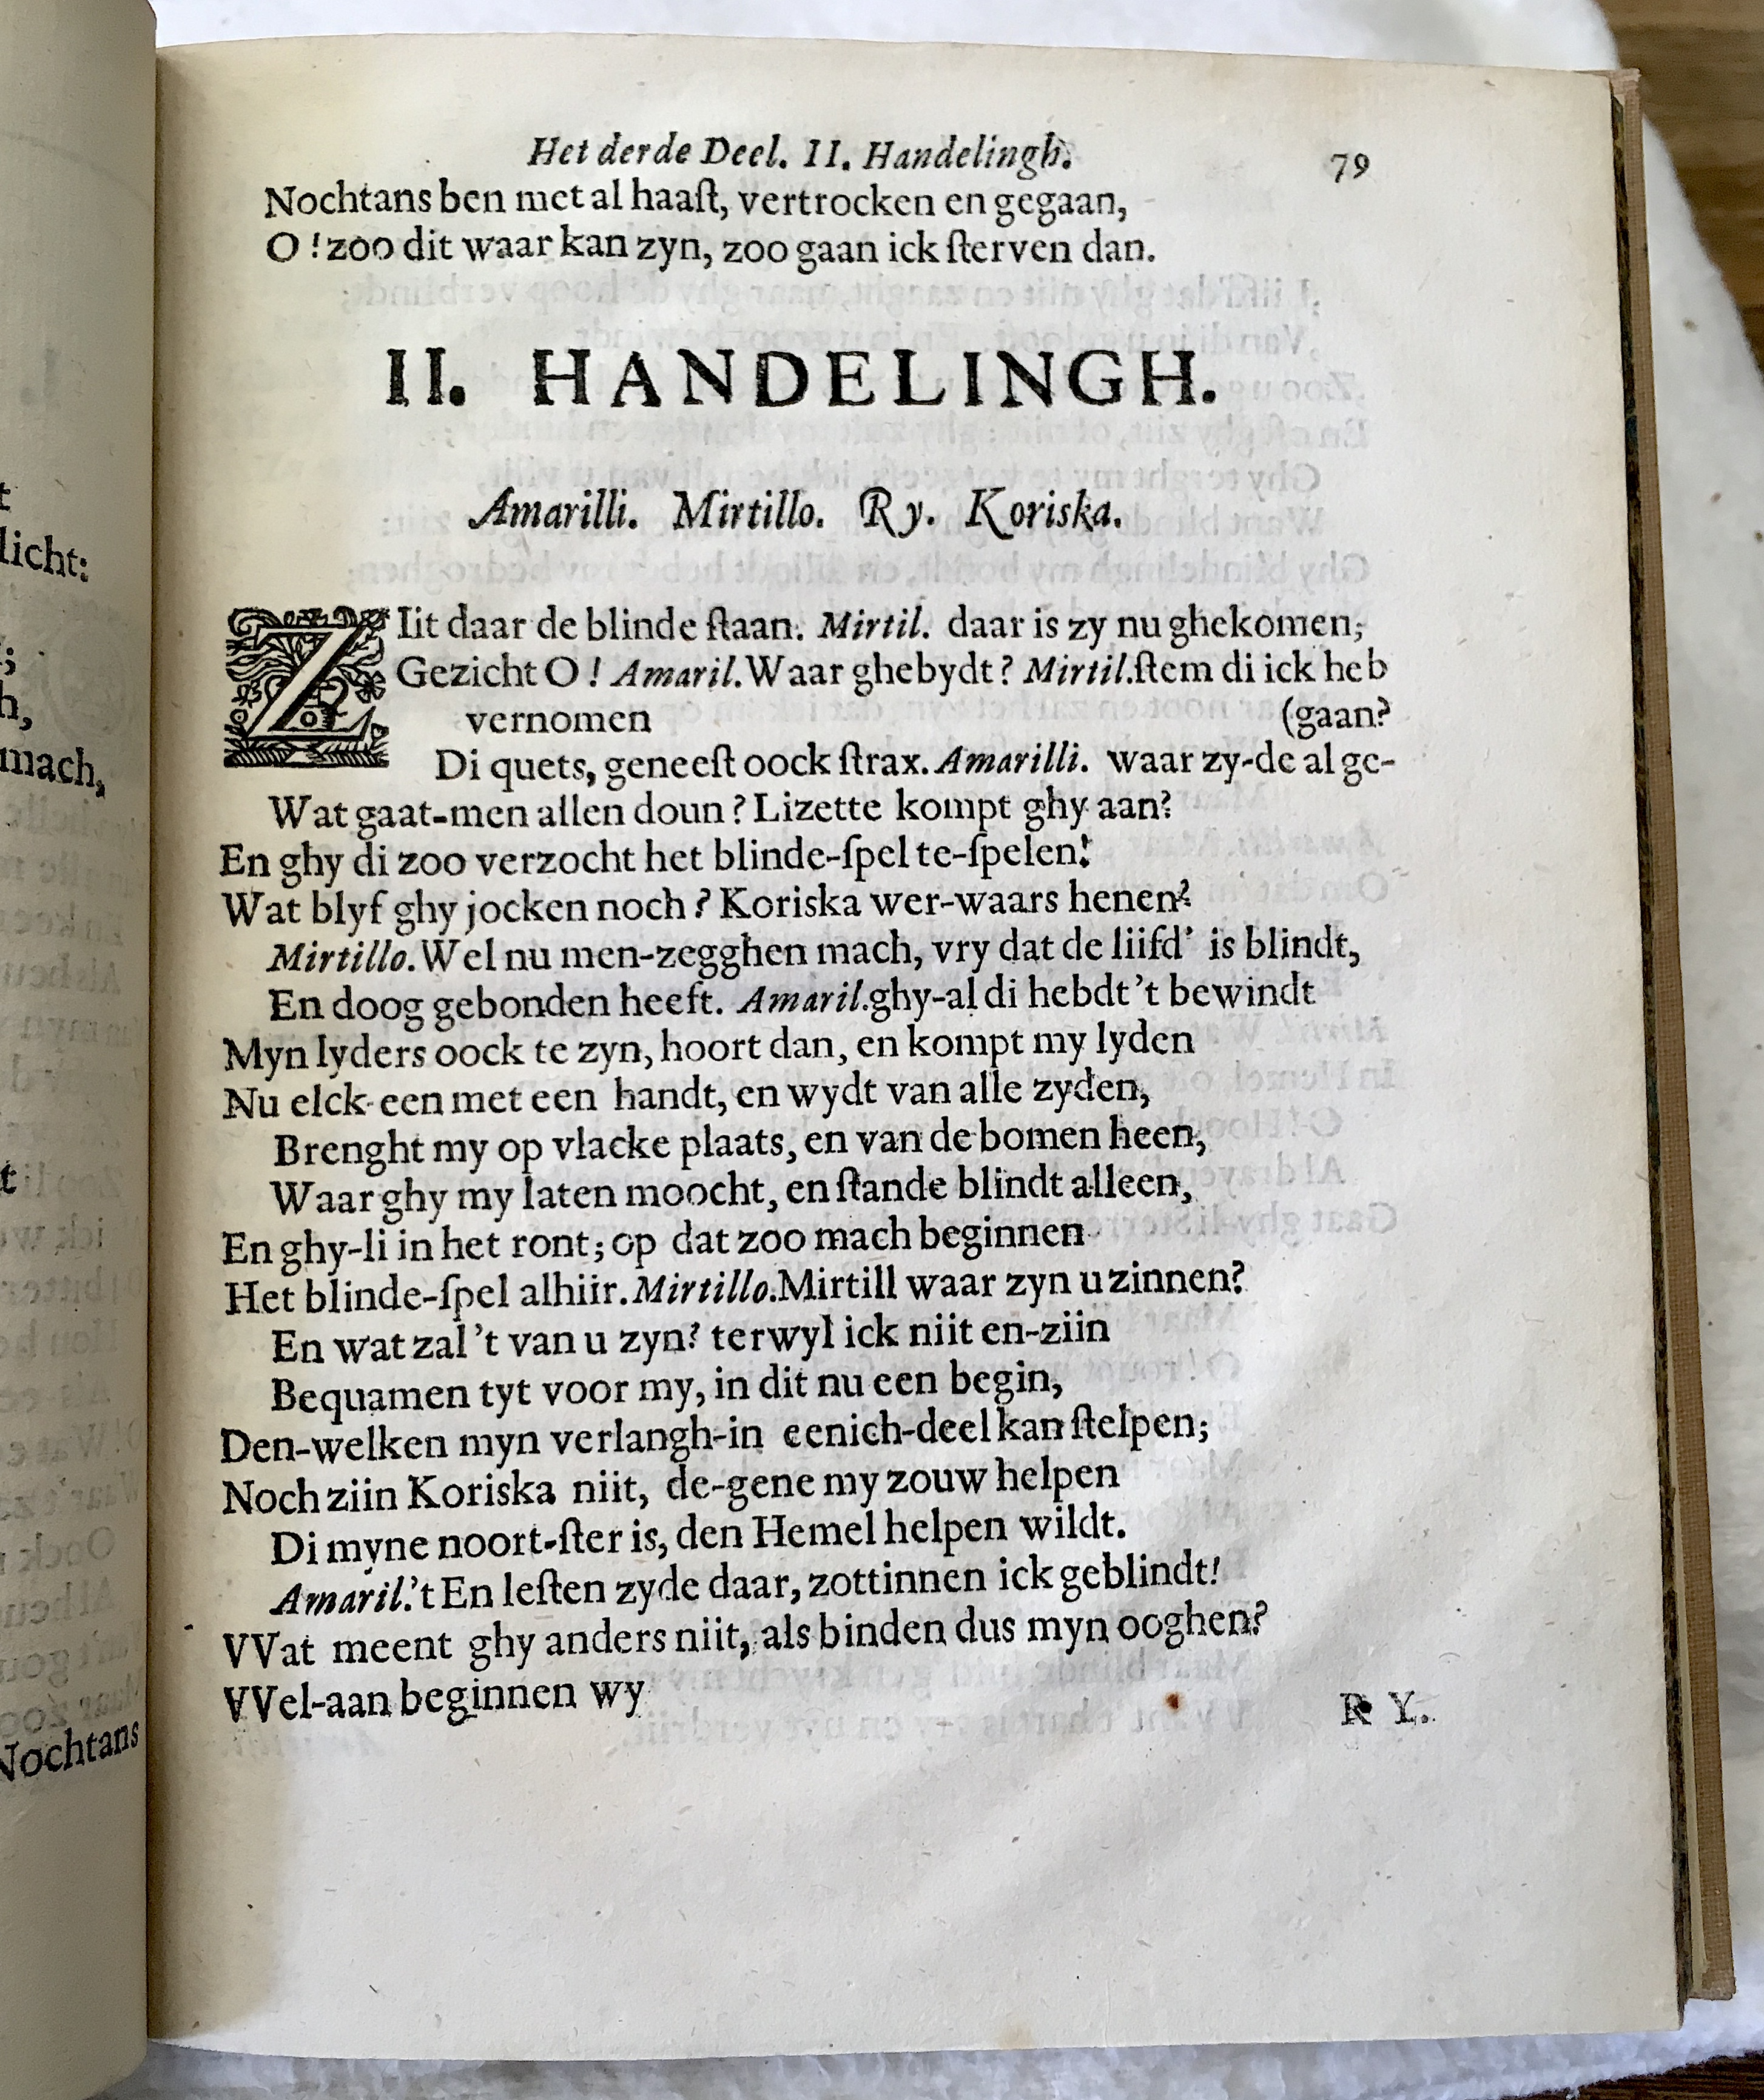 Het derde Deel. II. Handelingh. 79
Nochtans ben met al haaſt, vertrocken en gegaan,
O! zoo dit waar kan zyn, zoo gaan ick ſterven dan.
II. HANDELINGH.
Amarilli. Mirtillo. Ry. Koriska.
ZIit daar de blinde ſtaan. Mirtil. daar is zy nu ghekomen;
Gezicht O! Amaril. Waar ghebydt? Mirtil. ſtem di ick heb
vernomen (gaan?
Di quets, geneeſt oock ſtrax. Amarilli. waar zy-de al ge-
Wat gaat-men allen doun? Lizette kompt ghy aan?
En ghy di zoo verzocht het blinde-ſpel te-ſpelen!
Wat blyf ghy jocken noch? Koriska wer-waars henen?
Mirtillo. Wel nu men-zegghen mach, vry dat de liifd' is blindt,
En doog gebonden heeft. Amaril. ghy-al di hebdt 't bewindt
Myn lyders oock te zyn, hoort dan, en kompt my lyden
Nu elck een met een handt, en wydt van alle zyden,
Brenght my op vlacke plaats, en van de bomen heen,
Waar ghy my laten moocht, en ſtande blindt alleen,
En ghy-li in het ront; op dat zoo mach beginnen
Het blinde-ſpel alhiir. Mirtillo. Mirtill waar zyn u zinnen?
En wat zal 't van u zyn? terwyl ick niit en-ziin
Bequamen tyt voor my, in dit nu een begin,
Den-welken myn verlangh-in eenich-deel kan ſtelpen;
Noch ziin Koriska niit, de-gene my zouw helpen
Di myne noort-ſter is, den Hemel helpen wildt.
Amaril. 't En leſten zyde daar, zottinnen ick geblindt!
VVat meent ghy anders niit, als binden dus myn ooghen?
VVel-aan beginnen wy
RY.
licht:
mach,
Nochtans